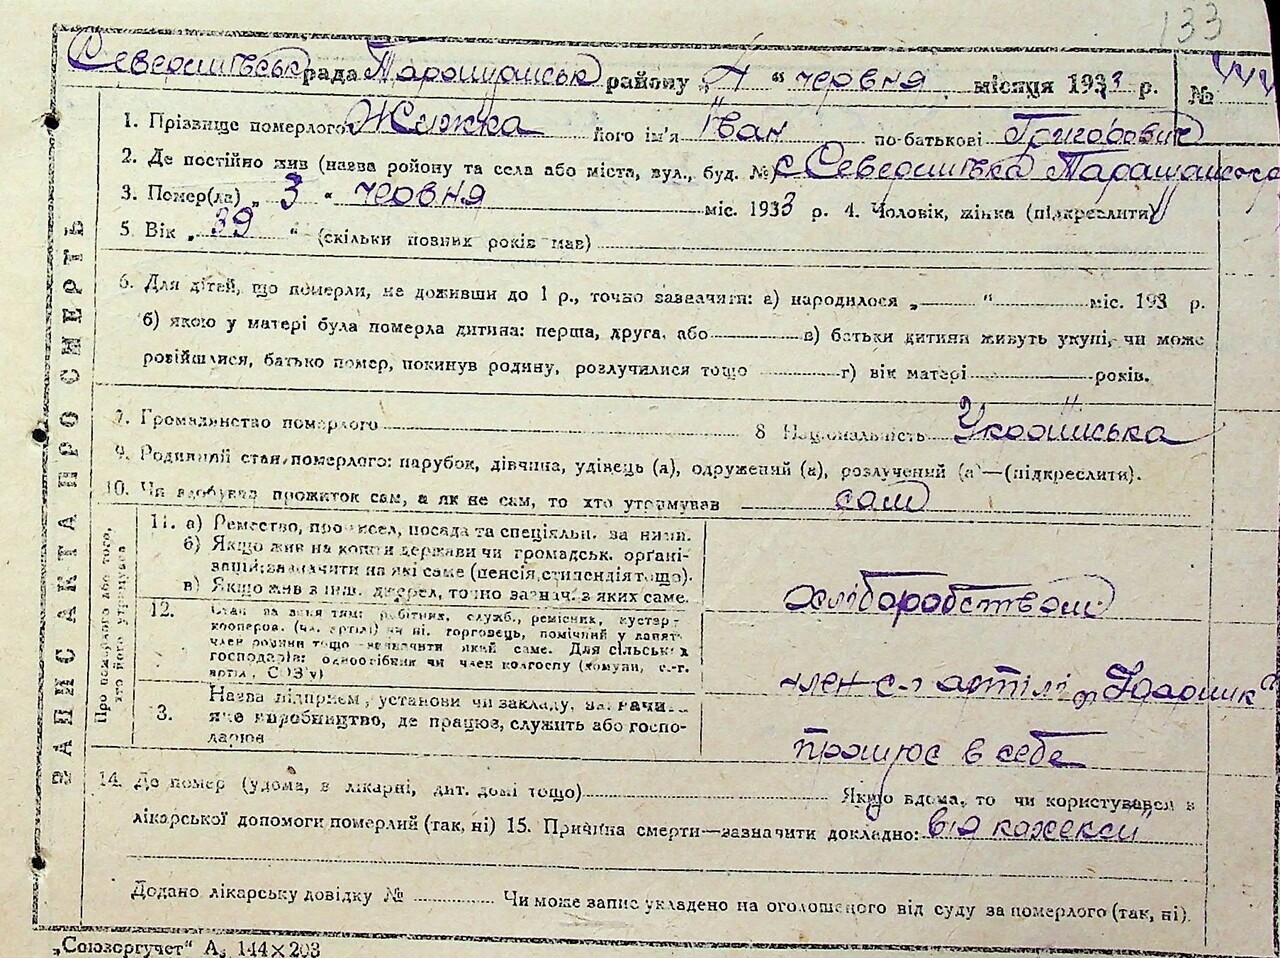 133
Северинівськ рада Таращанськ району „4“ червня місяця 1933 р. №
ЗАПИС АКТА ПРО СМЕРТЬ
1. Прізвище померлого Жужка його ім'я Іван по-батькові Григорович
2. Де постійно жив (назва району та села або міста, вул., буд. №) с Северинівка Таращанськ
3. Помер(ла) „3“ червня міс. 1933 р. 4. Чоловік, жінка (підкреслити)
5. Вік „39“ (скільки повних років мав)
6. Для дітей, що померли, не доживши до 1 р., точно зазначити: а) народилося „ “ міс. 193 р.
б) якою у матері була померла дитина: перша, друга, або в) батьки дитини живуть укупі, чи може
розійшлися, батько помер, покинув родину, розлучилися тощо г) вік матері років.
7. Громадянство померлого 8 Національність Українська
9. Родинний стан померлого: парубок, дівчина, удівець (а), одружений (а), розлучений (а)—(підкреслити).
10. Чи здобував прожиток сам, а як не сам, то хто утримував сам
Про померлого або того, хто його утримував
11. а) Ремество, промисел, посада та спеціяльн. за ними.
б) Якщо жив на кошти держави чи громадськ. органі-
зацій; зазначити на які саме (пенсія, стипендія тощо).
в) Якщо жив з інш. джерел, точно зазнач. з яких саме.
хліборобством
12. Стан за заняттям: робітник, служб., ремісник, кустар-
кооперов. (чл. артілі) чи ні, торговець, помічний у занят.
член родини тощо—зазначити який саме. Для сільськ.
господарів: одноосібник чи член колгоспу (комуни, с.-г.
артіл., СОЗ'у)
член с-г артілі „Ударник“
13. Назва підприєм., установи чи закладу, зазначи..
яке виробництво, де працює, служить або госпо-
дарює
працює в себе
14. Де помер (удома, в лікарні, дит. домі тощо) Якщо вдома, то чи користувався з
лікарської допомоги померлий (так, ні) 15. Причина смерти—зазначити докладно: від кахексії
Додано лікарську довідку № Чи може запис укладено на оголошеного від суду за померлого (так, ні).
„Союзоргучет“ А5 144×203